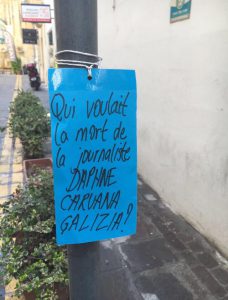 Qui voulait
la mort de
la journaliste
DAPHNE
CARUANA
GALIZIA?